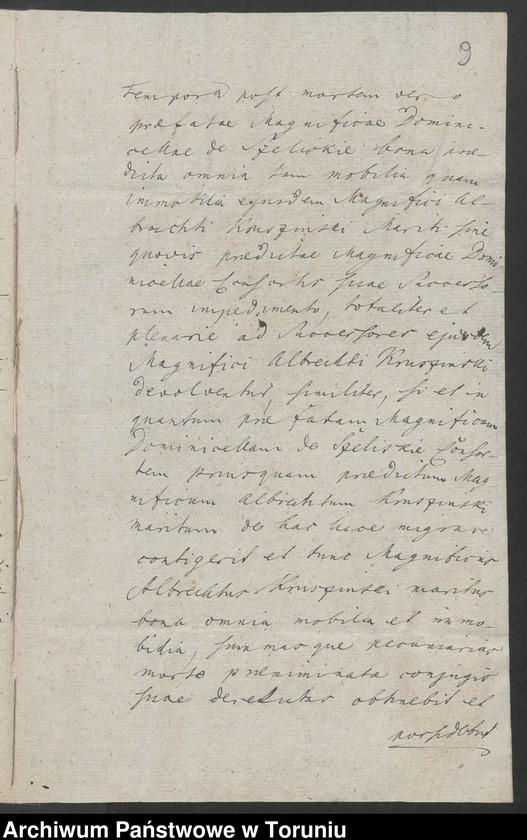 9
tempora post mortem vero
præfatae Magnificae Domini-
cellae de Szeliskie bona præ-
dicta omnia tam mobilia quam
immobilia ejusdem Magnifici Al-
brachti Kruszinsci Mariti sine
quovis prædictae Magnificae Domi
nicellae Consortis suae Successo-
rum impedimento, totaliter et
plenarie ad Successores ejusdem
Magnifici Albrechti Kruszinski
devolventur, similiter, si et in
quantum præfatam Magnificam
Dominicellam de Szeliskie Consor-
tem priusquam prædictum Mag-
nificum Albrechtum Kruszinski
maritum de hac luce migrare
contigerit et tunc Magnificus
Albrechtus Kruszinsci maritus
bona omnia mobilia et immo-
bidia, summasque pecuniarias
morte præniminata conjugis
suae derelictas obtinebit et
possidebit
Archiwum Państwowe w Toruniu